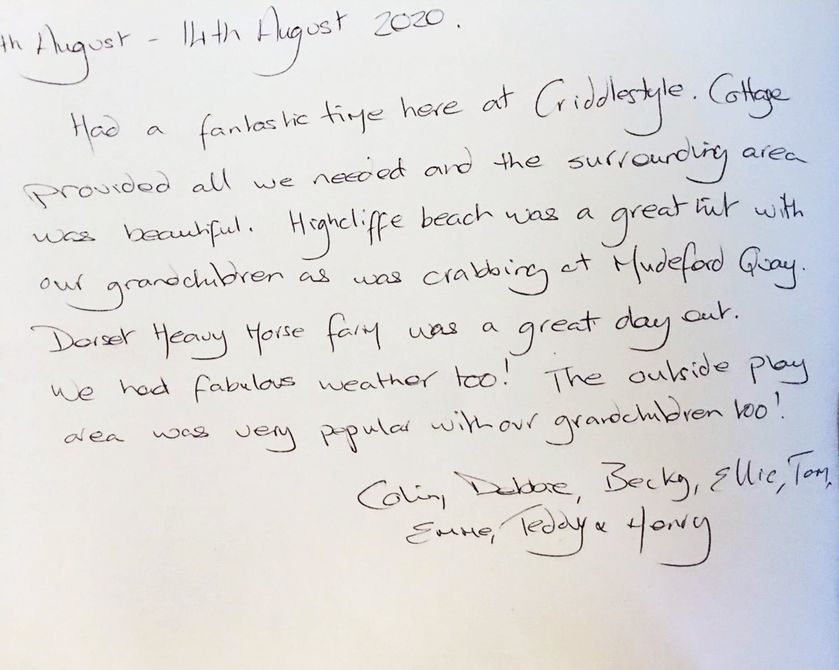 th August - 14th August 2020.
Had a fantastic time here at Criddlestyle. Cottage
provided all we needed and the surrounding area
was beautiful. Highcliffe beach was a great hit with
our grandchildren as was crabbing at Mudeford Quay.
Dorset Heavy Horse farm was a great day out.
We had fabulous weather too! The outside play
area was very popular with our grandchildren too!
Colin, Debbie, Becky, Ellie, Tom,
Emme, Teddy & Henry